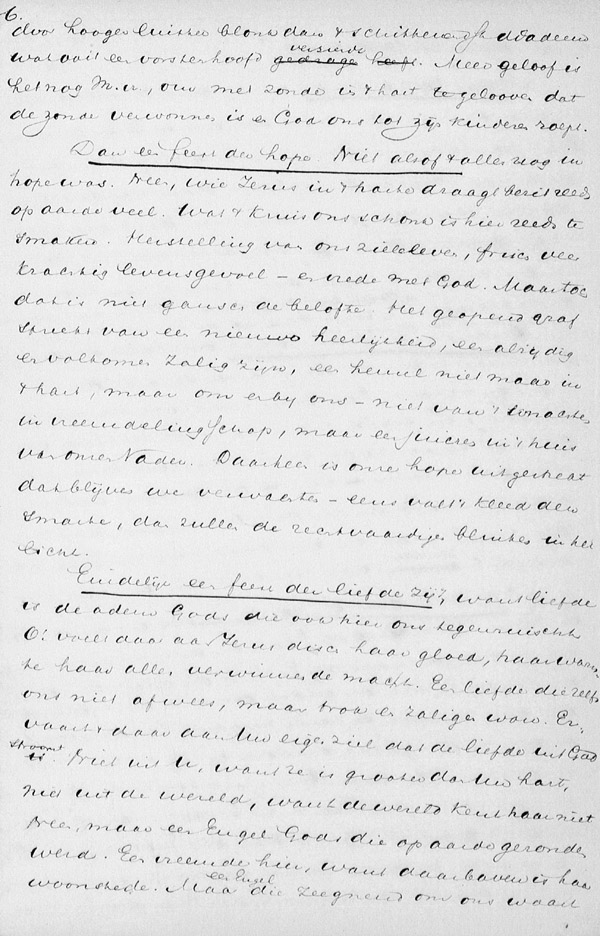 6.
door hooger luister blonk dan 't schitterendst diadeem
wat ooit een vorstenhoofd gedrage heeft versierde. Meer geloof is
het nog M. v., om met zonde in 't hart te gelooven dat
de zonde verwonnen is en God ons tot zijn kinderen roept.
Dan een feest der hope. Niet alsof 't alles nog in
hope was. Neen, wie Jezus in 't harte draagt bezit reeds
op aarde veel. Wat 't kruis ons schonk is hier reeds te
smaken. Herstelling van ons zieleleven, frisch veer
krachtig levensgevoel – en vrede met God. Maar toch
dat is niet gansch de belofte. Het geopend graf
spreekt van een nieuwe heerlijkheid, een altijdig
en volkomen zalig zijn, een hemel niet maar in
't hart, maar om en bij ons – niet van 't
in vreemdelingschap, maar een juichen in 't huis
van onzen Vader. Daarheen is onze hope uitgestrekt
dat blijven we verwachten – eens valt 't kleed der
smarte, dan zullen de rechtvaardigen blinken in het
licht.
Eindelijk een feest der liefde zij 't, want liefde
is de adem Gods die ook hier ons tegenruischt
O! voel daar aan Jezus disch haar gloed, haar warm-
te haar alles verwinnende macht. Een liefde die zelfs
ons niet afwees, maar trok en zaligen wou. Er-
vaart daar aan Uw eigen ziel dat de liefde uit God
is stroomt. Niet uit U, want ze is grooter dan Uw hart,
niet uit de wereld, want de wereld kent haar niet
Neen, maar een Engel Gods die op aarde gezonden
werd. Een vreemde hier, want daarboven is haar
woonstede. Maar een Engel die zegenend om ons waart